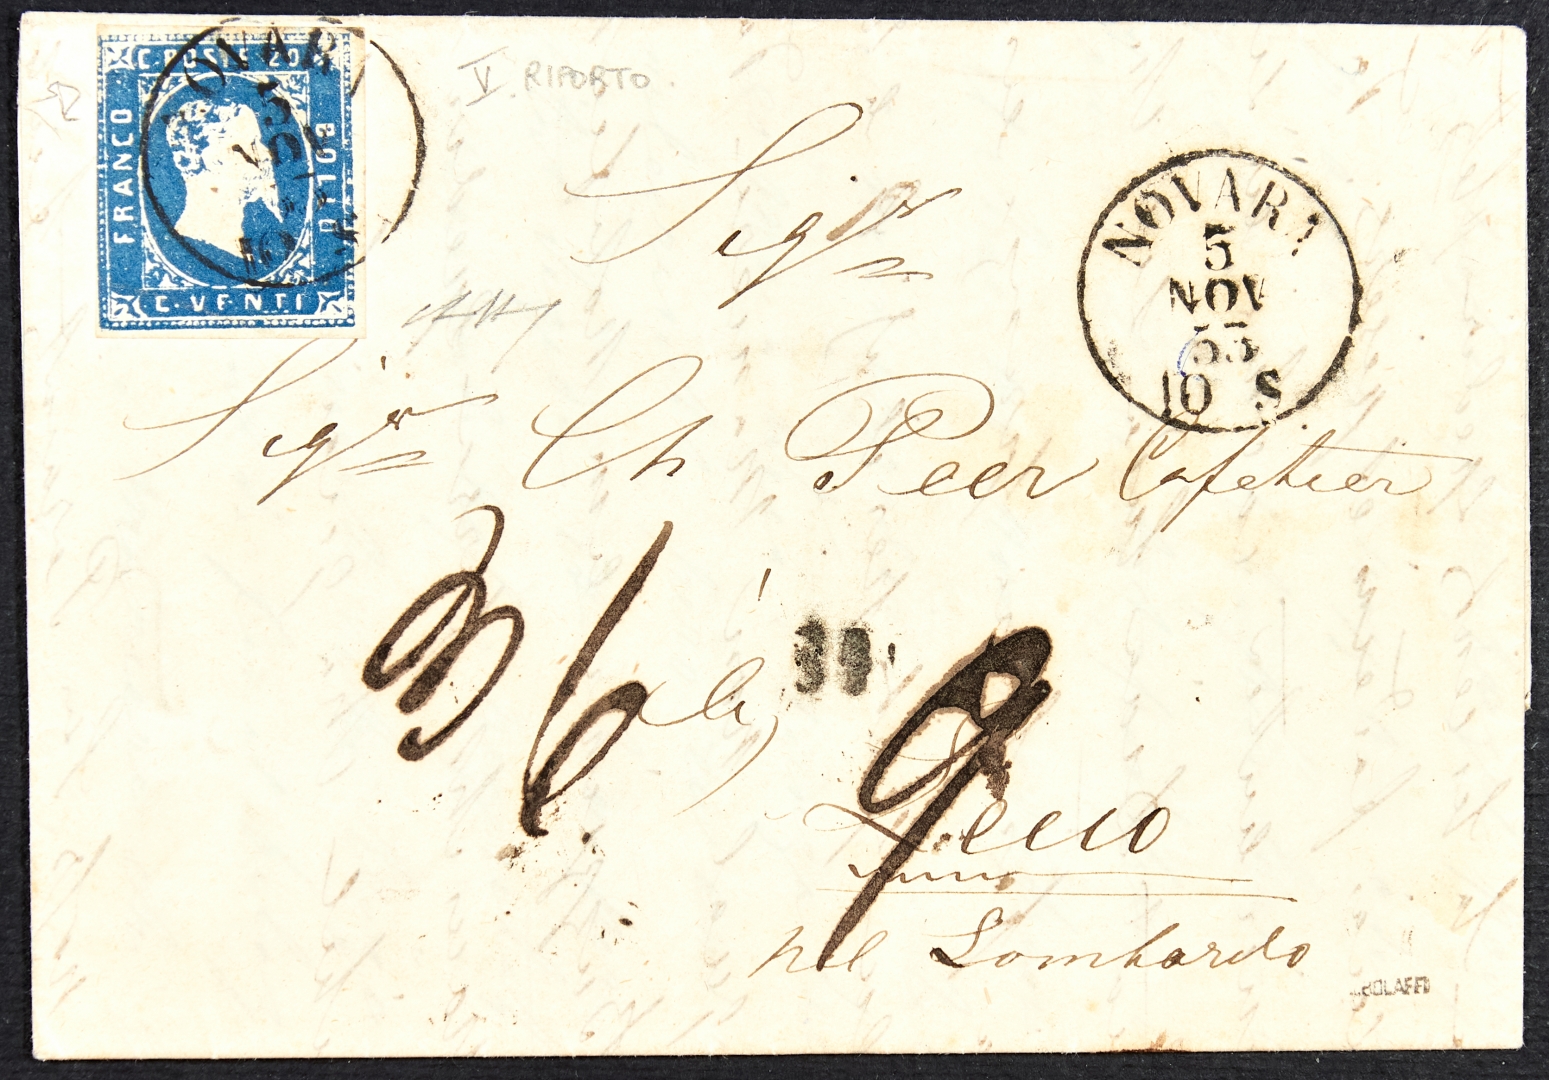 C. POSTE 20
FRANCO
BOLLO
C. VENTI
NOVARA
5
10
V. RIPORTO.
NOVARA
5
NOV
53
10 S
Sigr
Sigr Ch Peer Cafetier
36
9
Lecco
nel Lombardo
BOLAFFI